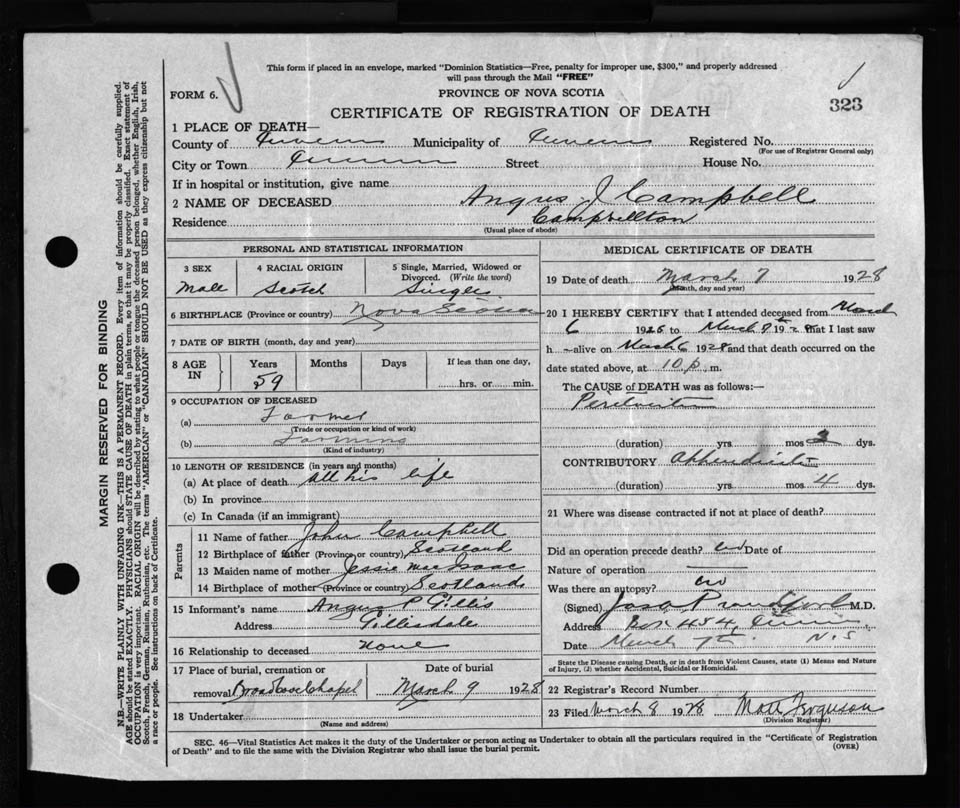 This form if placed in an envelope, marked "Dominion Statistics—Free, penalty for improper use, $300," and properly addressed
will pass through the Mail "FREE"
FORM 6.
PROVINCE OF NOVA SCOTIA
323
CERTIFICATE OF REGISTRATION OF DEATH
1 PLACE OF DEATH—
County of Municipality of Registered No.
(For use of Registrar General only)
City or Town Street House No.
If in hospital or institution, give name
2 NAME OF DECEASED Angus J Campbell
Residence Campbellton
(Usual place of abode)
PERSONAL AND STATISTICAL INFORMATION
3 SEX 4 RACIAL ORIGIN 5 Single, Married, Widowed or
Divorced. (Write the word)
Male Scotch Single
6 BIRTHPLACE (Province or country) Nova Scotia
7 DATE OF BIRTH (month, day and year)
8 AGE IN Years Months Days If less than one day,
59 hrs. or min.
9 OCCUPATION OF DECEASED
(a) Farmer
(Trade or occupation or kind of work)
(b) Farming
(Kind of industry)
10 LENGTH OF RESIDENCE (in years and months)
(a) At place of death all his life
(b) In province
(c) In Canada (if an immigrant)
Parents
11 Name of father John Campbell
12 Birthplace of father (Province or country) Scotland
13 Maiden name of mother Jessie MacIsaac
14 Birthplace of mother (Province or country) Scotland
15 Informant's name Angus P Gillis
Address Gillisdale
16 Relationship to deceased None
17 Place of burial, cremation or Date of burial
removal Broad Cove Chapel March 9 1928
18 Undertaker
(Name and address)
MEDICAL CERTIFICATE OF DEATH
19 Date of death March 7 1928
(Month, day and year)
20 I HEREBY CERTIFY that I attended deceased from March
6 192 to March 192 that I last saw
h alive on March 6 1928 and that death occurred on the
date stated above, at 10 p. m.
The CAUSE of DEATH was as follows:—
(duration) yrs. mos. dys.
CONTRIBUTORY Appendicitis
(duration) yrs. mos. 4 dys.
21 Where was disease contracted if not at place of death?
Did an operation precede death? Date of
Nature of operation
Was there an autopsy?
(Signed) M.D.
Address Box 454, N.S
Date March 7th
State the Disease causing Death, or in Death from Violent Causes, state (1) Means and Nature
of Injury, (2) whether Accidental, Suicidal or Homicidal.
22 Registrar's Record Number
23 Filed March 8 1928 Ferguson
(Division Registrar)
SEC. 46—Vital Statistics Act makes it the duty of the Undertaker or person acting as Undertaker to obtain all the particulars required in the "Certificate of Registration
of Death" and to file the same with the Division Registrar who shall issue the burial permit.
(OVER)
MARGIN RESERVED FOR BINDING
N.B.—WRITE PLAINLY WITH UNFADING INK—THIS IS A PERMANENT RECORD. Every item of information should be carefully supplied.
AGE should be stated EXACTLY. PHYSICIANS should STATE CAUSE OF DEATH in plain terms, so that it may be properly classified. Exact statement of
OCCUPATION is very important. RACIAL ORIGIN will be described by stating to what people or tongue the deceased person belonged, whether English, Irish,
Scotch, French, German, Russian, Ruthenian, etc. The terms "AMERICAN" or "CANADIAN" SHOULD NOT BE USED as they express citizenship but not
a race or people. See instructions on back of Certificate.